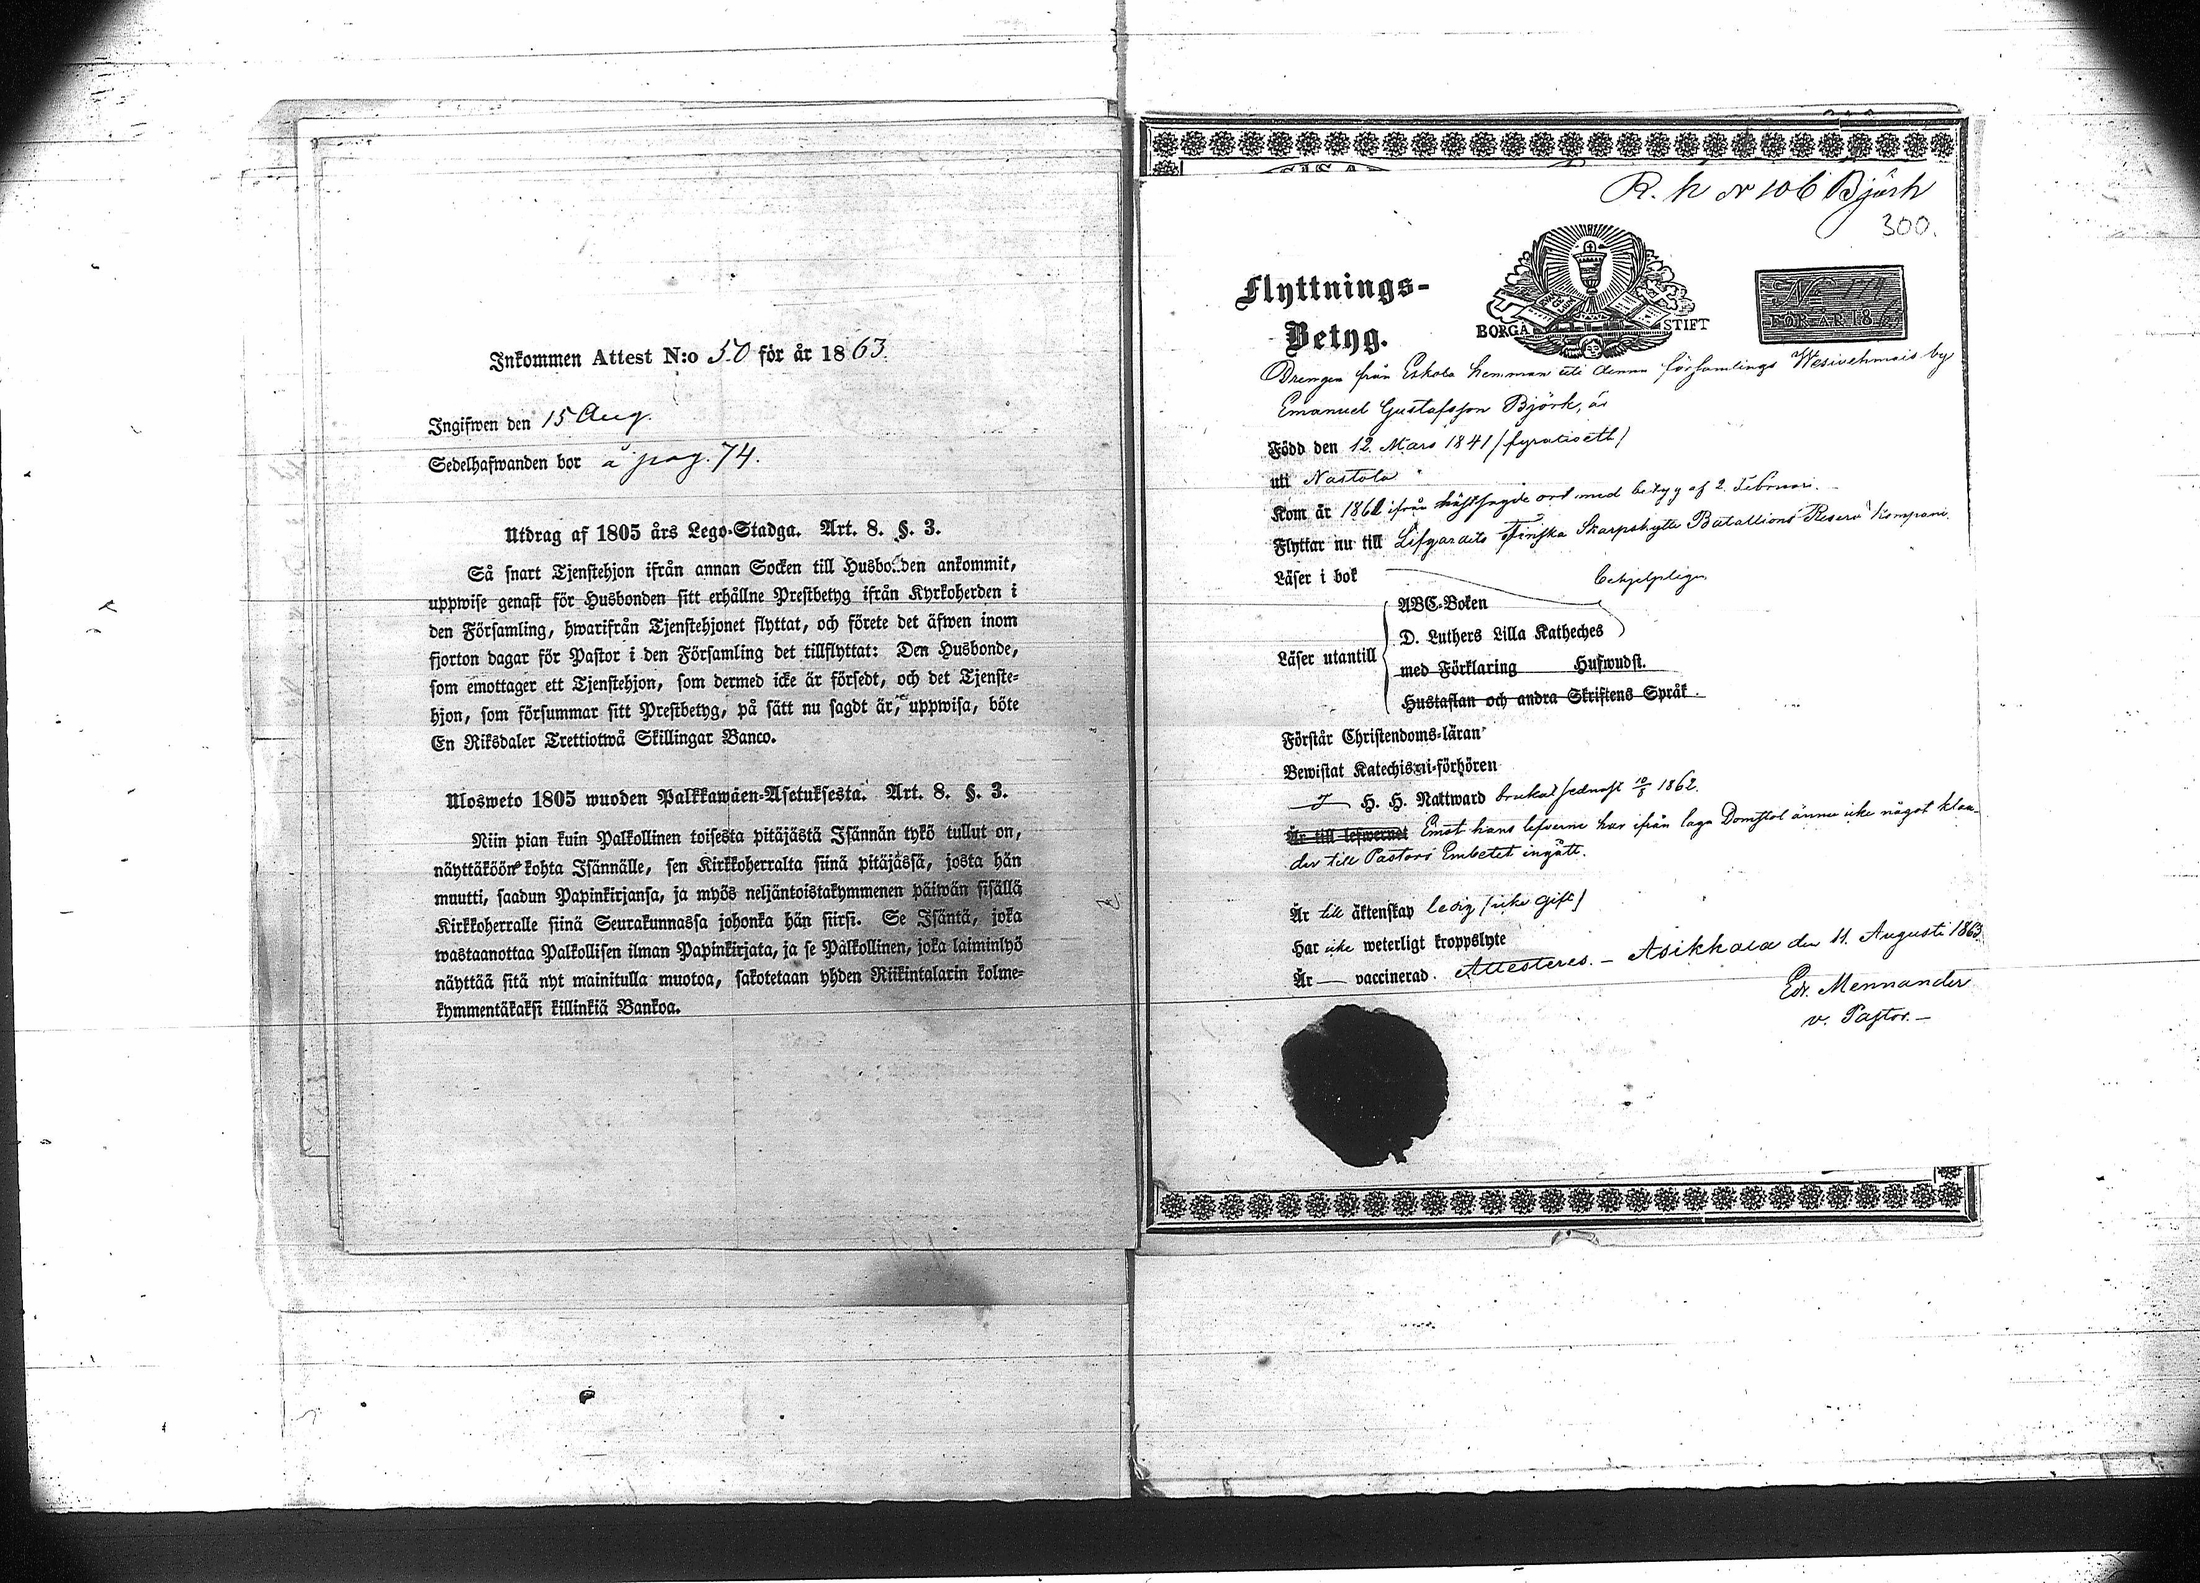 Inkommen Attest N:o 50 för år 1863.
Ingifwen den 15 Aug.
Sedelhafwanden bor å pag. 74.
Utdrag af 1805 års Lego-Stadga. Art. 8. §. 3.
Så snart Tjenstehjon ifrån annan Socken till Husbonden ankommit,
uppwise genast för Husbonden sitt erhållne Prestbetyg ifrån Kyrkoherden i
den Församling, hwarifrån Tjenstehjonet flyttat, och förete det äfwen inom
fjorton dagar för Pastor i den Församling det tillflyttat: Den Husbonde,
som emottager ett Tjenstehjon, som dermed icke är försedt, och det Tjenste-
hjon, som försummar sitt Prestbetyg, på sätt nu sagdt är, uppwisa, böte
En Riksdaler Trettiotwå Skillingar Banco.
Ulosweto 1805 wuoden Palkkawäen-Asetuksesta. Art. 8. §. 3.
Niin pian kuin Palkollinen toisesta pitäjästä Isännän tykö tullut on,
näyttäköön kohta Isännälle, sen Kirkkoherralta siinä pitäjässä, josta hän
muutti, saadun Papinkirjansa, ja myös neljäntoistakymmenen päiwän sisällä
Kirkkoherralle siinä Seurakunnassa johonka hän siirsi. Se Isäntä, joka
wastaanottaa Palkollisen ilman Papinkirjata, ja se Palkollinen, joka laiminlyö
näyttää sitä nyt mainitulla muotoa, sakotetaan yhden Riikintalarin kolme-
kymmentäkaksi killinkiä Bankoa.
R. k N 106 Björk
300.
Flyttnings-
Betyg.
BORGÅ STIFT
FÖR ÅR 186
Drengen från Eskola hemman uti denna församlings Wesivehmais by
Emanuel Gustafsson Björk, är
Född den 12 Mars 1841 (fyratioett)
uti Nastola
Kom år 1861 ifrån nästsagde ort med betyg af 2 Februari.
Flyttar nu till Lifgardets Finska Skarpskytte Bataillons Reserv Kompani.
Läser i bok behjelpligen
Läser utantill
ABC-Boken
D. Luthers Lilla Katheches
med Förklaring Hufwudst.
Hustaflan och andra Skriftens Språk.
Förstår Christendoms-läran
Bewistat Katechismi-förhören
H. H. Nattward brukat sednast 10/8 1862.
Är till lefwernet Emot hans lefverne har ifrån laga Domstol ännu icke något klan-
der till Pastors Embetet ingått.
Är till äktenskap ledig (icke gift)
Har icke weterligt kroppslyte
Är — vaccinerad. Attesteres. — Asikkala den 11. Augusti 1863.
Edv. Mennander
v. Pastor. —